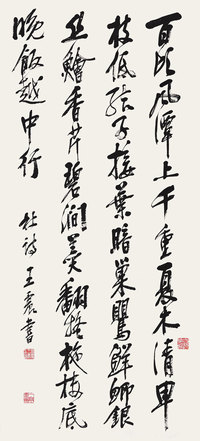 百頃風潭上千重夏木清卑
枝低結子接葉暗巢鶯鮮鯽銀
絲鱠香芹碧澗羹翻疑柂樓底
晚飯越中行
杜詩 王震書